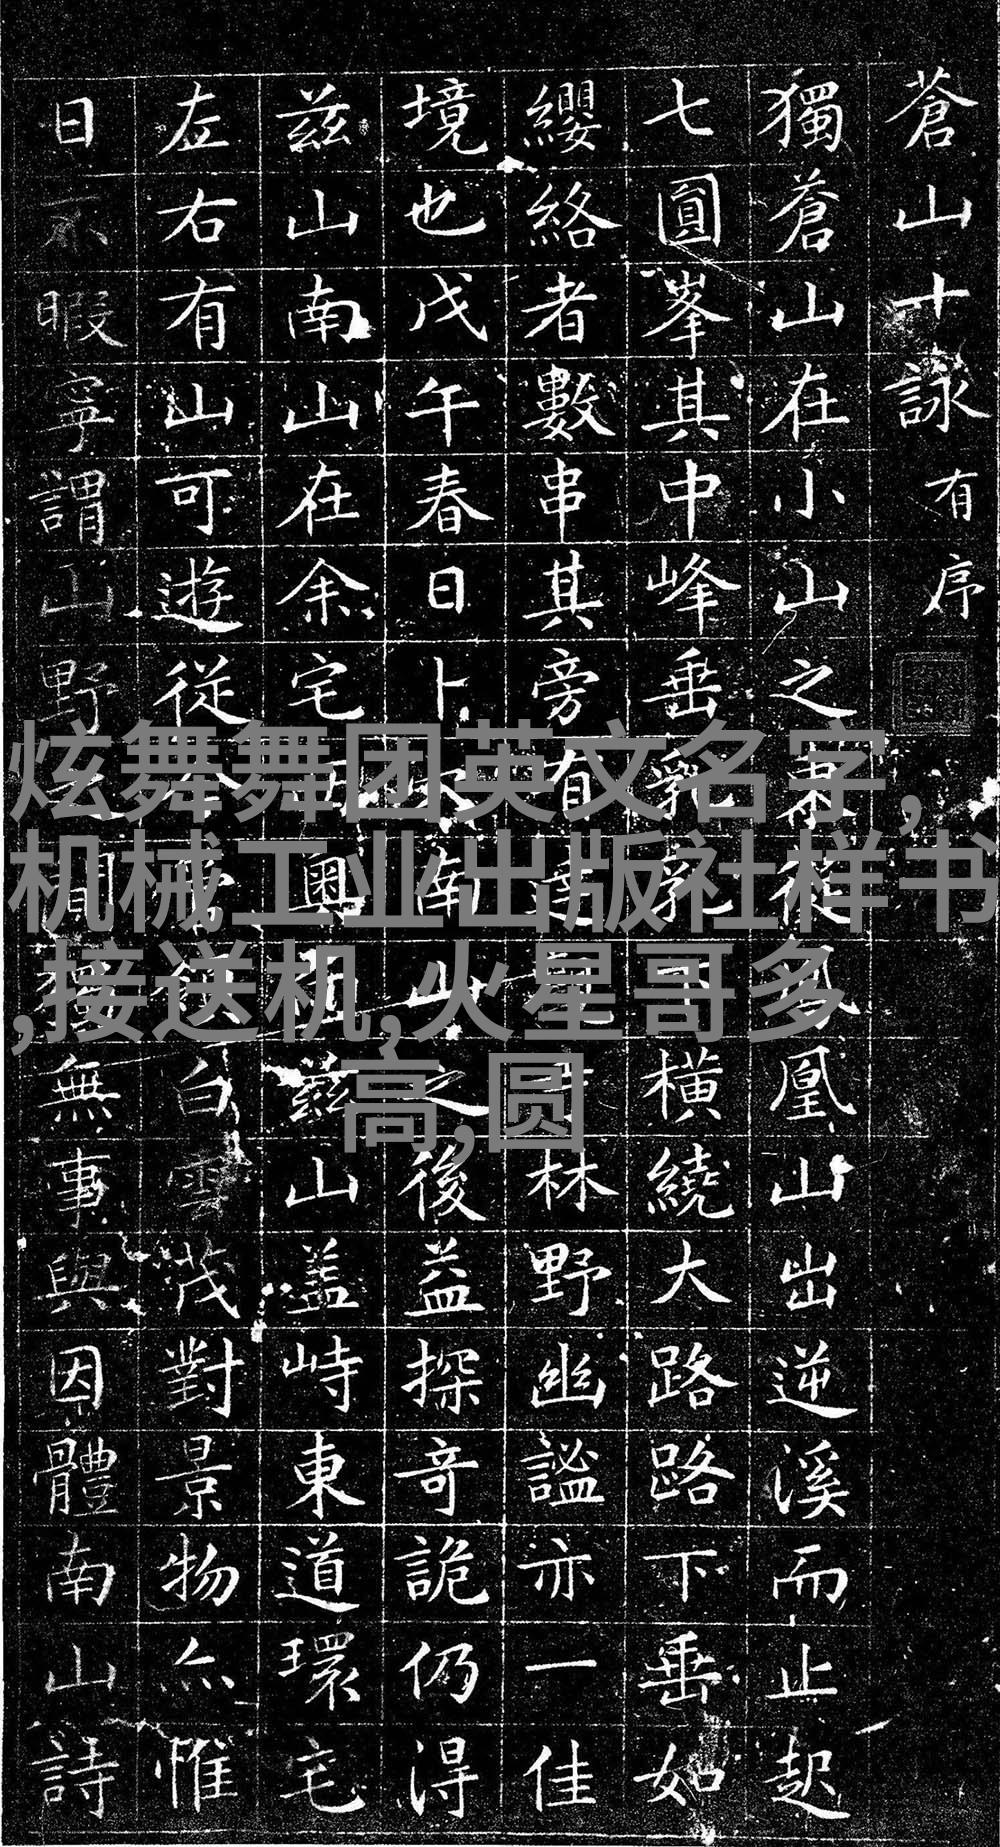 蒼山十詠有序
獨蒼山在小山之東從鳳凰山出逆溪而止起
七圓峯其中峰垂乳乳下橫繞大路路下垂如
纓絡者數串其旁有林野幽謐亦一佳
境也戊午春日卜南山之後益探奇詭仍得
茲山南山在余宅與茲山蓋峙東道環宅
左右有山可遊從白雲茂對景物亦惟
日不暇寧謂山野間無事與因體南山詩
炫舞舞团英文名字,
机械工业出版社样书
,接送机,火星哥多
高,圆